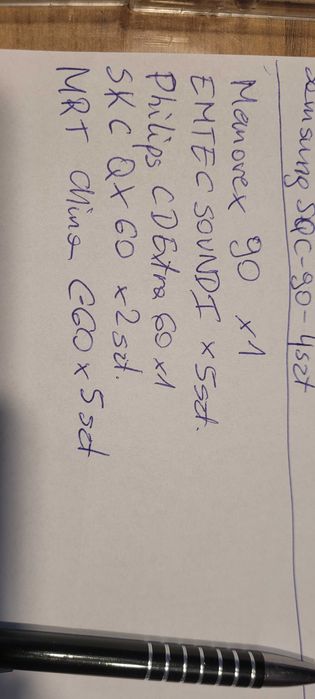 Samsung SQC-90-4szt
Memorex 90 x1
EMTEC SOUND I x 5szt.
Philips CD Extra 60 x1
SKC QX 60 x 2 szt.
MRT China C-60 x 5 szt